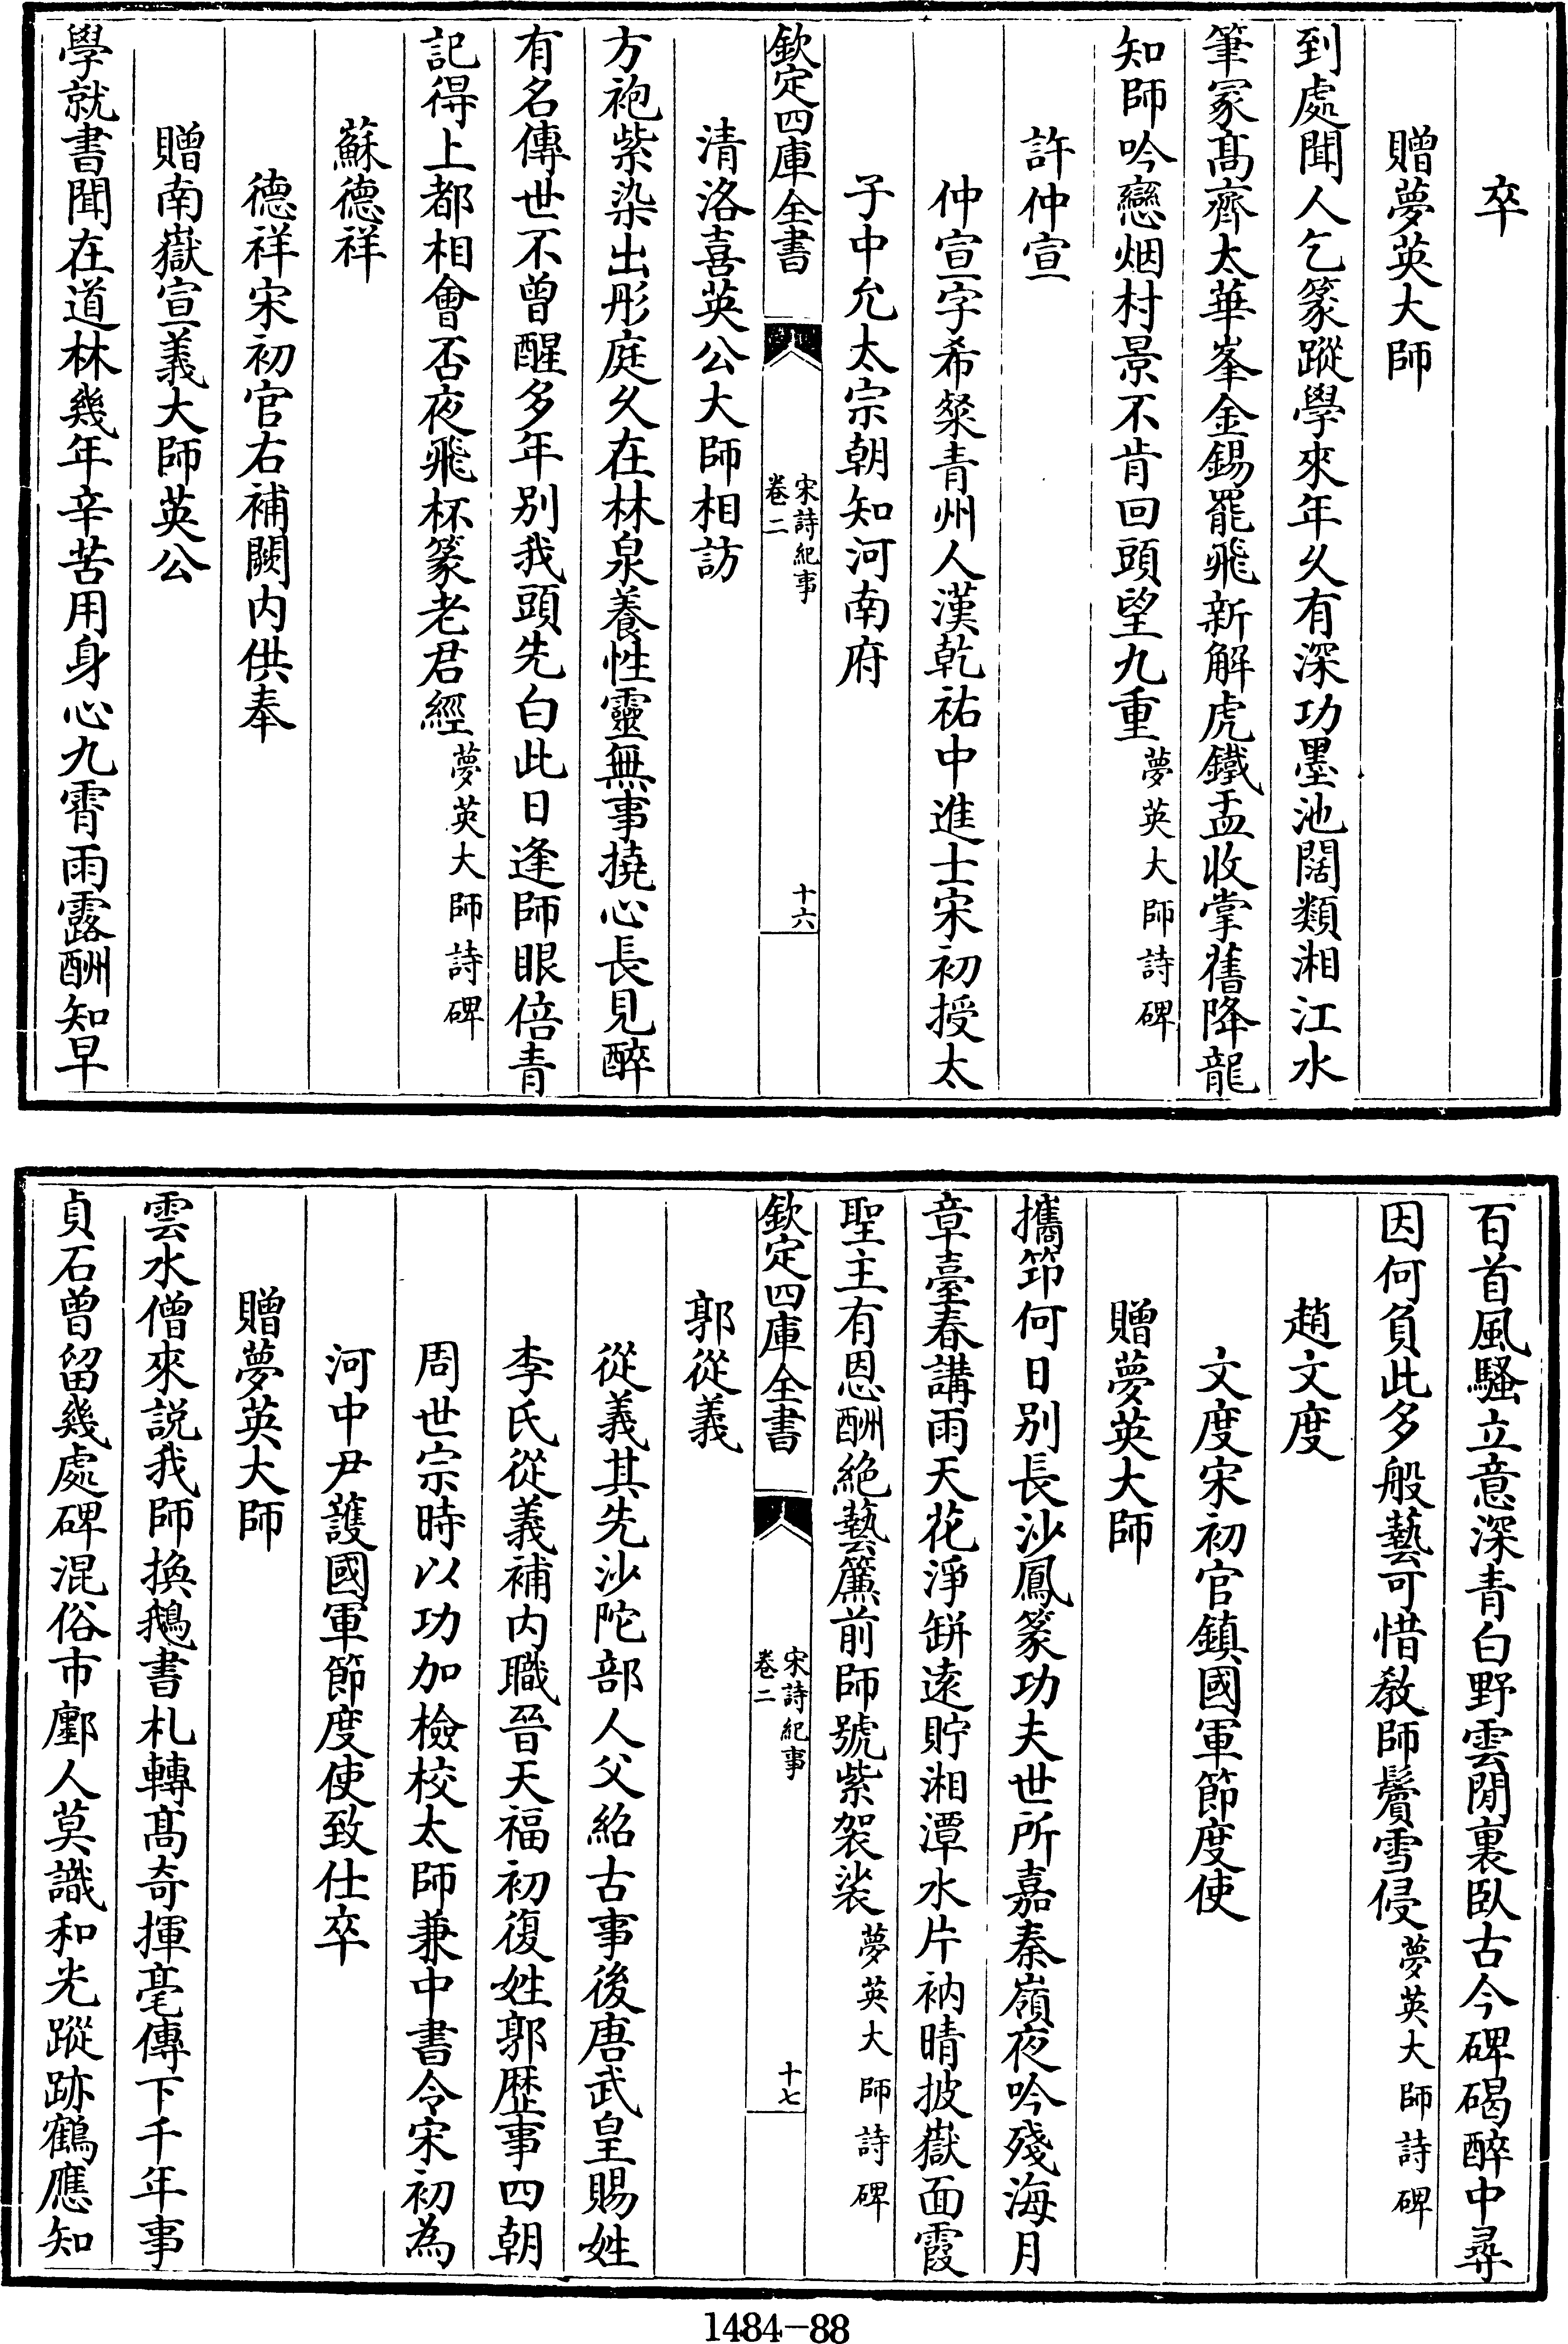 卒
贈夢英大師
到處聞人乞篆蹤學來年久有深功墨池闊類湘江水
筆冢髙齊太華峯金錫罷飛新解虎鐵盂收掌舊降龍
知師吟戀烟村景不肯回頭望九重夢英大師詩碑
許仲宣
仲宣字希粲青州人漢乾祐中進士宋初授太
子中允太宗朝知河南府
欽定四庫全書
宋詩紀事
卷二
十六
清洛喜英公大師相訪
方袍紫染出彤庭久在林泉養性靈無事撓心長見醉
有名傳世不曾醒多年别我頭先白此日逢師眼倍青
記得上都相會否夜飛杯篆老君經夢英大師詩碑
蘇德祥
德祥宋初官右補闕内供奉
贈南嶽宣義大師英公
學就書聞在道林幾年辛苦用身心九霄雨露酬知早
百首風騷立意深青白野雲閒裏臥古今碑碣醉中尋
因何負此多般藝可惜教師鬢雪侵夢英大師詩碑
趙文度
文度宋初官鎮國軍節度使
贈夢英大師
攜笻何日别長沙鳳篆功夫世所嘉秦嶺夜吟殘海月
章臺春講雨天花淨缾遠貯湘潭水片衲晴披嶽面霞
聖主有恩酬絶藝簾前師號紫袈裟夢英大師詩碑
欽定四庫全書
宋詩紀事
卷二
十七
郭從義
從義其先沙陀部人父紹古事後唐武皇賜姓
李氏從義補内職晉天福初復姓郭歷事四朝
周世宗時以功加檢校太師兼中書令宋初為
河中尹護國軍節度使致仕卒
贈夢英大師
雲水僧來説我師換鵝書札轉髙奇揮毫傳下千年事
貞石曾留幾處碑混俗市鄽人莫識和光蹤跡鶴應知
1484-88